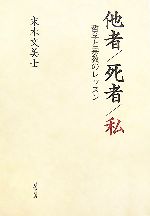 他者/死者/私
哲学と宗教のレッスン
末木文美士